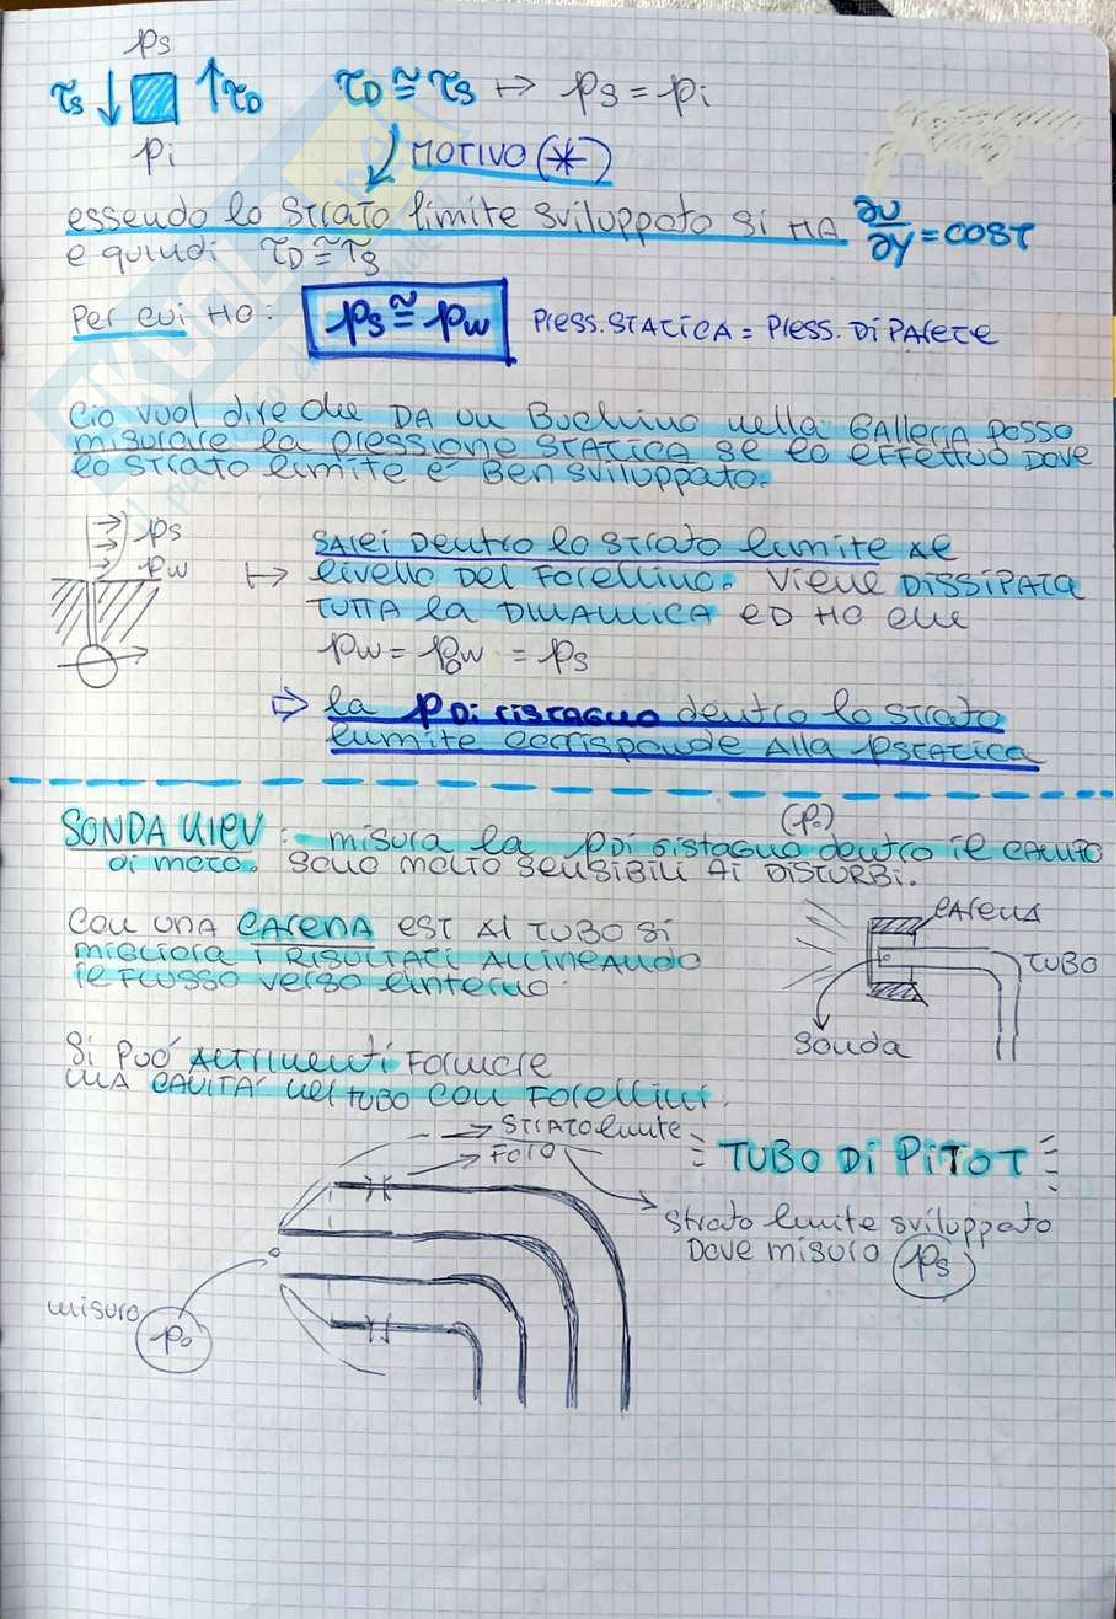 ps
τs ↓ ↑ τD τD ≅ τs ↦ ps = pi
pi
MOTIVO (*)
essendo lo strato limite sviluppato si HA ∂v/∂y = COST
e quindi τD ≅ τs
Per cui HO: ps ≅ pw PRESS. STATICA = PRESS. Di PARETE
Ciò vuol dire che DA un Buchino nella GALLERIA posso
misurare la pressione STATICA se lo EFFETTUO DOVE
lo STRATO limite è BEN sviluppato.
ps
pw
SAREI DENTRO lo STRATO limite AL
↦ livello DEL FORELLINO. Viene DISSIPATA
TUTTA la DINAMICA ED HO che
pw = p0w = ps
⇒ la p Di RISTAGNO dentro lo strato
limite corrisponde Alla pSTATICA
(p0)
SONDA KIEV: misura la p Di ristagno dentro il CAMPO
Di moto. Sono molto SENSIBILI Ai DISTURBI.
CON UNA CARENA EST Al TUBO Si
MIGLIORA i RISULTATI ALLINEANDO
il FLUSSO verso l'interno.
CARENA
TUBO
Sonda
Si PUÒ ALTRIMENTI FORMARE
UNA CAVITÀ nel TUBO CON FORELLINI.
STRATO limite
FORO
TUBO Di PITOT
Strato limite sviluppato
Dove misuro ps
misuro
p0